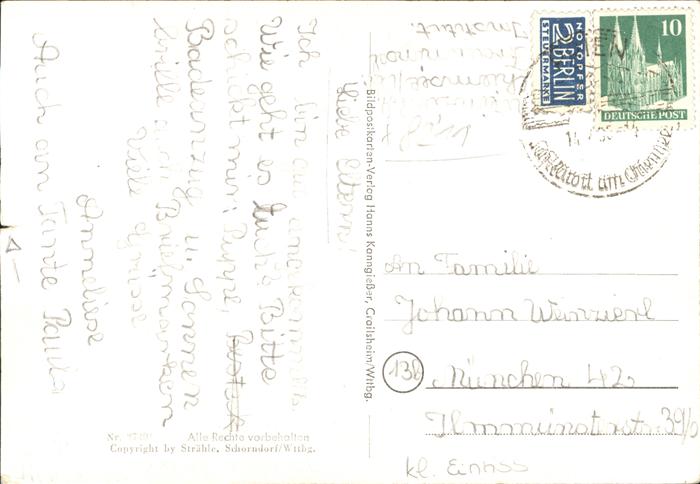 Liebe Eltern!
Ich bin gut angekommen.
Wie geht es Euch? Bitte
schickt mir: Puppe,
Badeanzug u. Sonnen
brille auch Briefmarken
Viele Grüsse
Annelise
Auch an Tante Paula
Institut.
Bildpostkarten-Verlag Hanns Kanngießer, Crailsheim/Wttbg.
NOTOPFER
2 BERLIN
STEUERMARKE
10
DEUTSCHE POST
14
am Chiemsee
An Familie
Johann Weinzierl
13b
München 42
Ilmmünsterstr. 39/0
kl. Einriss
Nr.
Alle Rechte vorbehalten
Copyright by Strähle, Schorndorf/Wttbg.